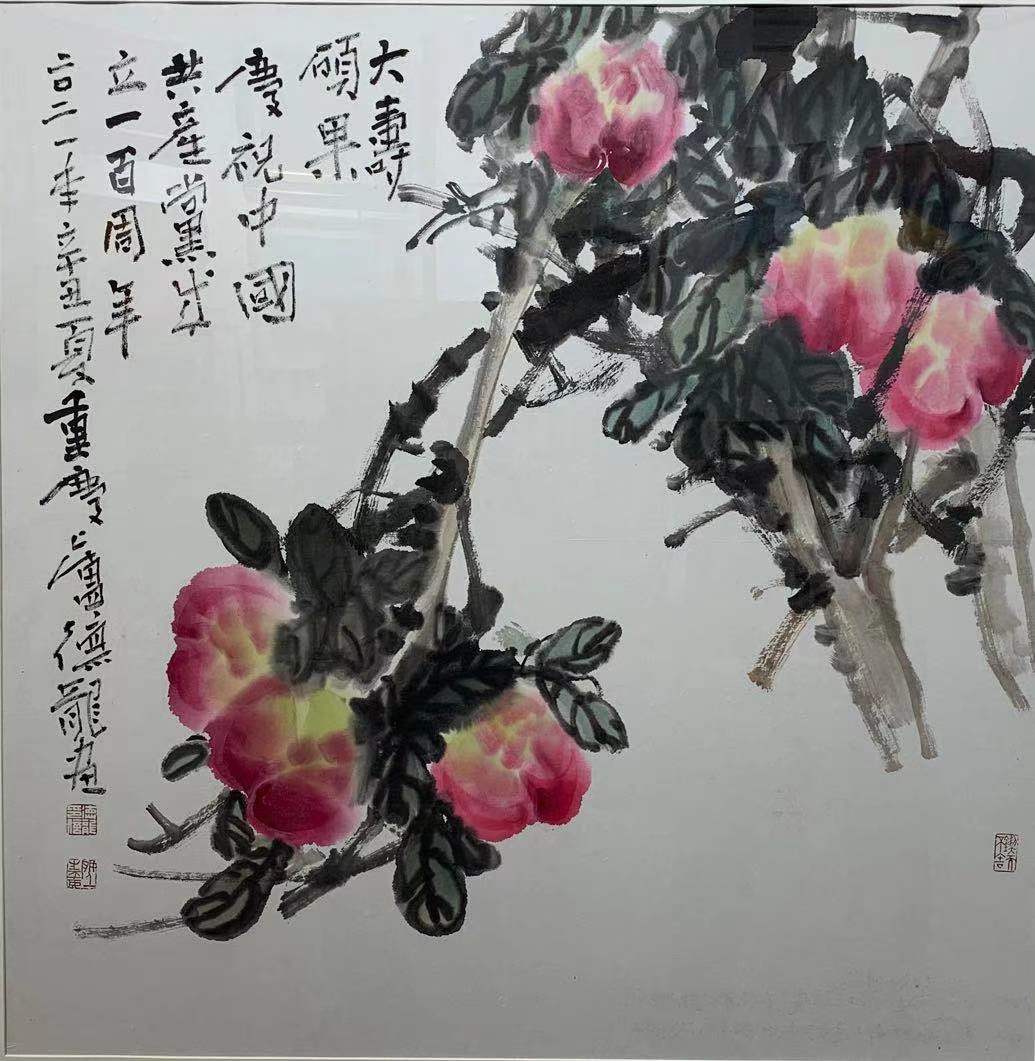 大壽
碩果
慶祝中國
共産黨成
立一百周年
二〇二一年辛丑夏重慶德龍画